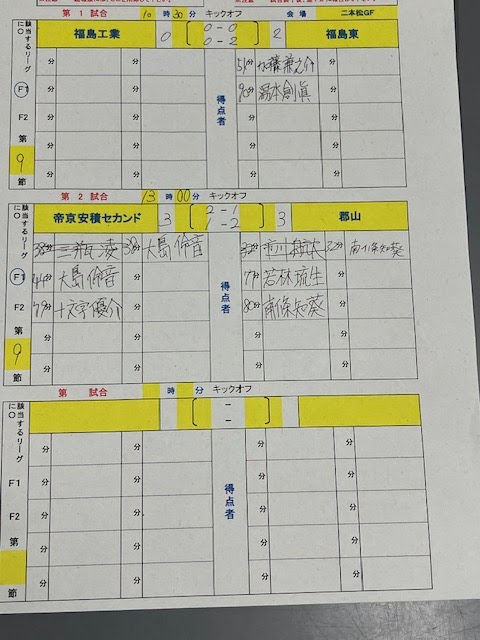 第 1 試合 10 時 30 分 キックオフ 会場 二本松GF
該当するリーグに○ 福島工業 0 〔 0 - 0 〕 2 福島東
0 - 2
分 分 得点者 51分 加藤兼之介 分
F1 分 分 90分 湯本創眞 分
F2 分 分 分 分
第 分 分 分 分
9 分 分 分 分
第 2 試合 13 時 00 分 キックオフ
該当するリーグに○ 帝京安積セカンド 3 〔 2 - 1 〕 3 郡山
1 - 2
38分 三瓶 凌 38分 大島倫音 得点者 32分 32分 南條知葵
F1 44分 大島倫音 分 77分 若林琉生 分
F2 79分 十文字優介 分 80分 南條知葵 分
第 分 分 分 分
9 分 分 分 分
節
第 試合 時 分 キックオフ
該当するリーグに○ 〔 - 〕
-
分 分 得点者 分 分
F1 分 分 分 分
F2 分 分 分 分
第 分 分 分 分
分 分 分 分
節